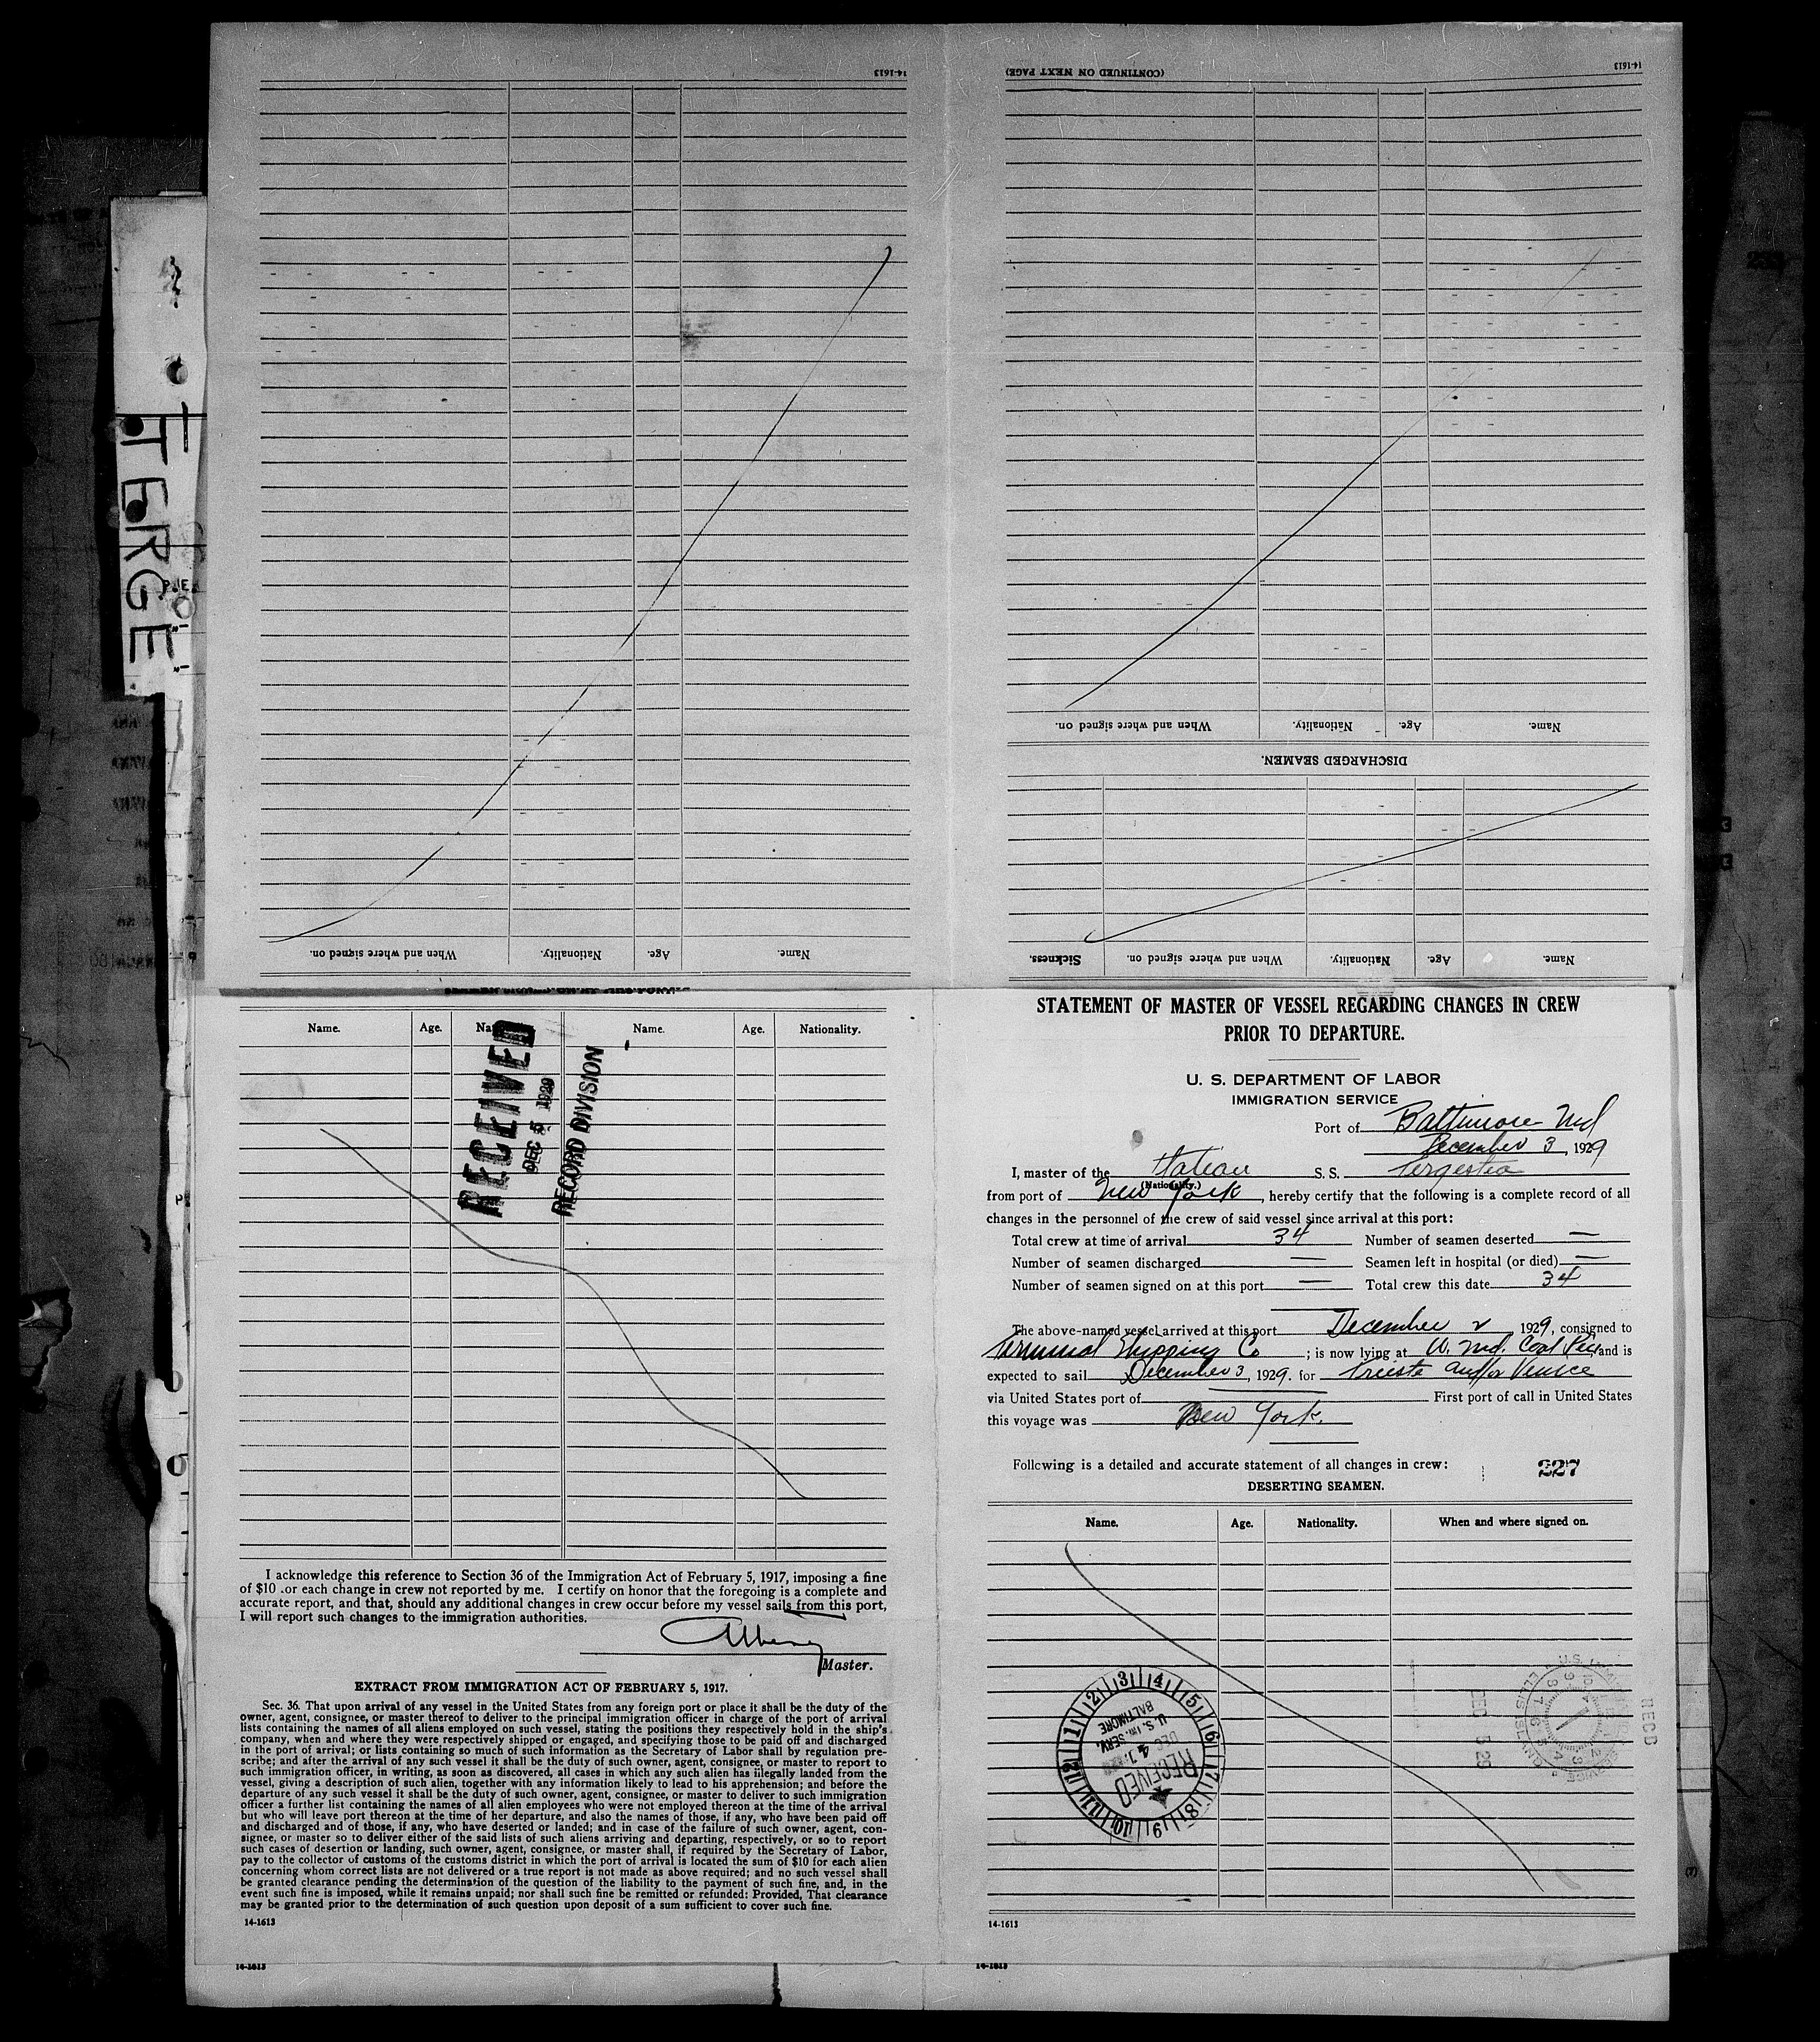 14-1613
(CONTINUED ON NEXT PAGE)
14-1613
TERGE
When and where signed on.
Nationality.
Age.
Name.
DISCHARGED SEAMEN.
When and where signed on.
Nationality.
Age.
Name.
Sickness.
When and where signed on.
Nationality.
Age.
Name.
Name.
Age.
Name.
Age.
Nationality.
RECEIVED
DEC 5 1929
RECORD DIVISION
I acknowledge this reference to Section 36 of the Immigration Act of February 5, 1917, imposing a fine
of $10 for each change in crew not reported by me. I certify on honor that the foregoing is a complete and
accurate report, and that, should any additional changes in crew occur before my vessel sails from this port,
I will report such changes to the immigration authorities.
Master.
EXTRACT FROM IMMIGRATION ACT OF FEBRUARY 5, 1917.
Sec. 36. That upon arrival of any vessel in the United States from any foreign port or place it shall be the duty of the
owner, agent, consignee, or master thereof to deliver to the principal immigration officer in charge of the port of arrival
lists containing the names of all aliens employed on such vessel, stating the positions they respectively hold in the ship's
company, when and where they were respectively shipped or engaged, and specifying those to be paid off and discharged
in the port of arrival; or lists containing so much of such information as the Secretary of Labor shall by regulation pre-
scribe; and after the arrival of any such vessel it shall be the duty of such owner, agent, consignee, or master to report to
such immigration officer, in writing, as soon as discovered, all cases in which any such alien has illegally landed from the
vessel, giving a description of such alien, together with any information likely to lead to his apprehension; and before the
departure of any such vessel it shall be the duty of such owner, agent, consignee, or master to deliver to such immigration
officer a further list containing the names of all alien employees who were not employed thereon at the time of the arrival
but who will leave port thereon at the time of her departure, and also the names of those, if any, who have been paid off
and discharged and of those, if any, who have deserted or landed; and in case of the failure of such owner, agent, con-
signee, or master so to deliver either of the said lists of such aliens arriving and departing, respectively, or so to report
such cases of desertion or landing, such owner, agent, consignee, or master shall, if required by the Secretary of Labor,
pay to the collector of customs of the customs district in which the port of arrival is located the sum of $10 for each alien
concerning whom correct lists are not delivered or a true report is not made as above required; and no such vessel shall
be granted clearance pending the determination of the question of the liability to the payment of such fine, and, in the
event such fine is imposed, while it remains unpaid; nor shall such fine be remitted or refunded: Provided, That clearance
may be granted prior to the determination of such question upon deposit of a sum sufficient to cover such fine.
14-1613
14-1613
STATEMENT OF MASTER OF VESSEL REGARDING CHANGES IN CREW
PRIOR TO DEPARTURE.
U. S. DEPARTMENT OF LABOR
IMMIGRATION SERVICE
Port of Baltimore Md
December 3, 1929
I, master of the Italian S. S. Tergestea
(Nationality.)
from port of New York, hereby certify that the following is a complete record of all
changes in the personnel of the crew of said vessel since arrival at this port:
Total crew at time of arrival 34 Number of seamen deserted —
Number of seamen discharged — Seamen left in hospital (or died) —
Number of seamen signed on at this port — Total crew this date 34
The above-named vessel arrived at this port December 2 1929, consigned to
Terminal Shipping Co; is now lying at W. Md. Coal Pier, and is
expected to sail December 3, 1929. for Trieste and/or Venice
via United States port of — First port of call in United States
this voyage was New York.
Following is a detailed and accurate statement of all changes in crew:
227
DESERTING SEAMEN.
Name.
Age.
Nationality.
When and where signed on.
1 2 3 4 5 6 7 8 9 10 11 12
U.S. IM. SERV.
BALTIMORE
DEC 4
RECEIVED
DEC 5 29
RECD
14-1613
14-1613